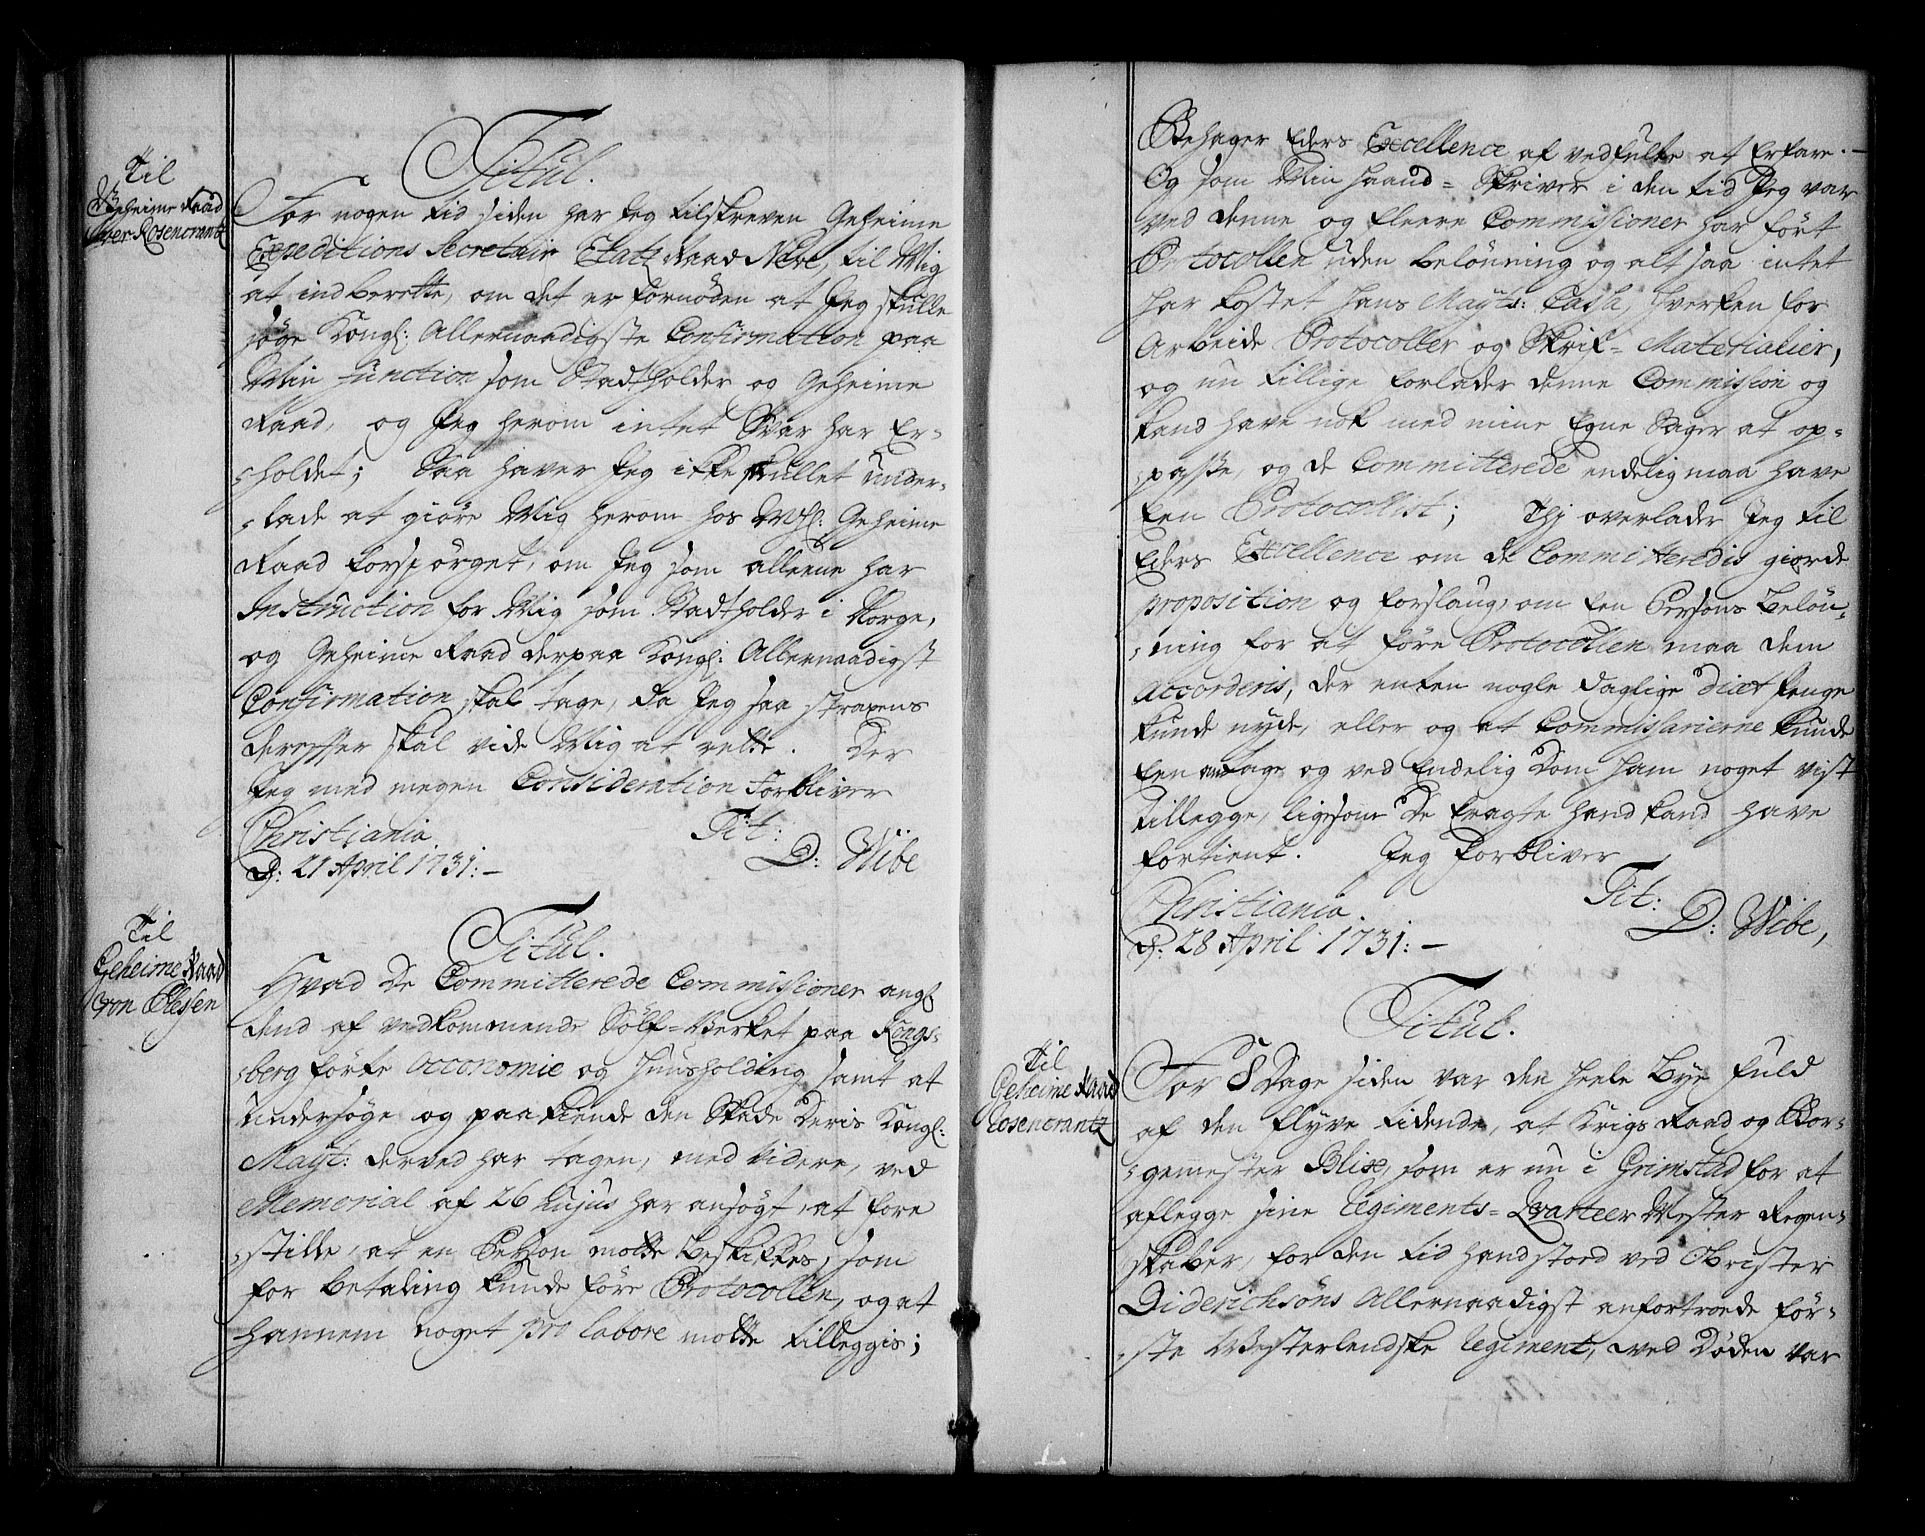 Til
Geheime Raad
Iver Rosencrantz
Titul.
For nogen tid siden har Jeg tilskreven Geheime
Expeditions Secretair Etatz Raad Neve, til Mig
at indberette, om det er fornøden at Jeg skulle
søge Kongl: Allernaadigste Confirmation paa
Min function som Stadtholder og Geheime
Raad, og Jeg herom intet Svar har Er-
-holdet; Saa haver Jeg ikke skullet under-
-lade at giøre Mig herom hos Geheime
Raad forspørget, om Jeg som alleene har
Instruction for Mig som Stadtholder i Norge,
og Geheime Raad derpaa Kongl: Allernaadigst
Confirmation skal tage, da Jeg saa straxens
derefter skal vide Mig at rette. Der
Jeg med megen Consideration forbliver
Christiania Tit:
d: 21 April 1731:- D: Wibe
Til
Geheime Raad
von Plessen
Titul.
Hvad De Committerede Commissioner angl
dend af vedkommende Sölf-Verket paa Kongs-
-berg førte oeconomie og Huusholding samt at
Undersøge og paakiende den Skade Deris Kongl:
Mayt: derved har tagen, med videre, ved
Memorial af 26 hujus har ansøgt, at fore
-stille, at en Person motte beskikkes, som
for betaling kunde føre Protocollen, og at
hannem noget pro labore motte tilleggis;
Behager Eders Excellence af vedfulte at Erfare.-
Og som Min Haand-Skriver i den tid Jeg var
ved denne og fleere Commissioner har ført
Protocollen uden belønning og alt saa intet
har kostet Hans Mayts: Cassa, hverken for
Arbeide Protocoller og Skrif-Materialier,
og nu tillige forlader denne Commission og
kand have nok med mine Egne Sager at op-
-passe, og de Committerede endelig maa have
Een Protocollist; Thj overlader Jeg til
Eders Excellence om de Committeredis giorde
proposition og forslaug, om Een Persons beløn-
-ning for at føre Protocollen maa dem
accorderis, der enten nogle daglige diæt penge
kunde nyde, eller og at Commissarierne kunde
Een antage og ved Endelig Dom ham noget vist
tillegge, ligesom De tragte hand kand have
fortient. Jeg forbliver
Christiania. Tit:
d: 28 April 1731:- D: Wibe,
Til
Geheime Raad
Rosencrantz
Titul.
For 8 Dage siden var den heele Bye fuld
af den flyve tidende, at Krigs Raad og Bor-
-gemester Blix, som er nu i Grimstad for at
aflegge sine Regiments-Qvarteer Mester Regen-
skaber, for den tid hand stod ved Obrister
Diderichsöns Allernaadigst anfortroede før-
-ste Westerlendske Regiment, ved Døden var